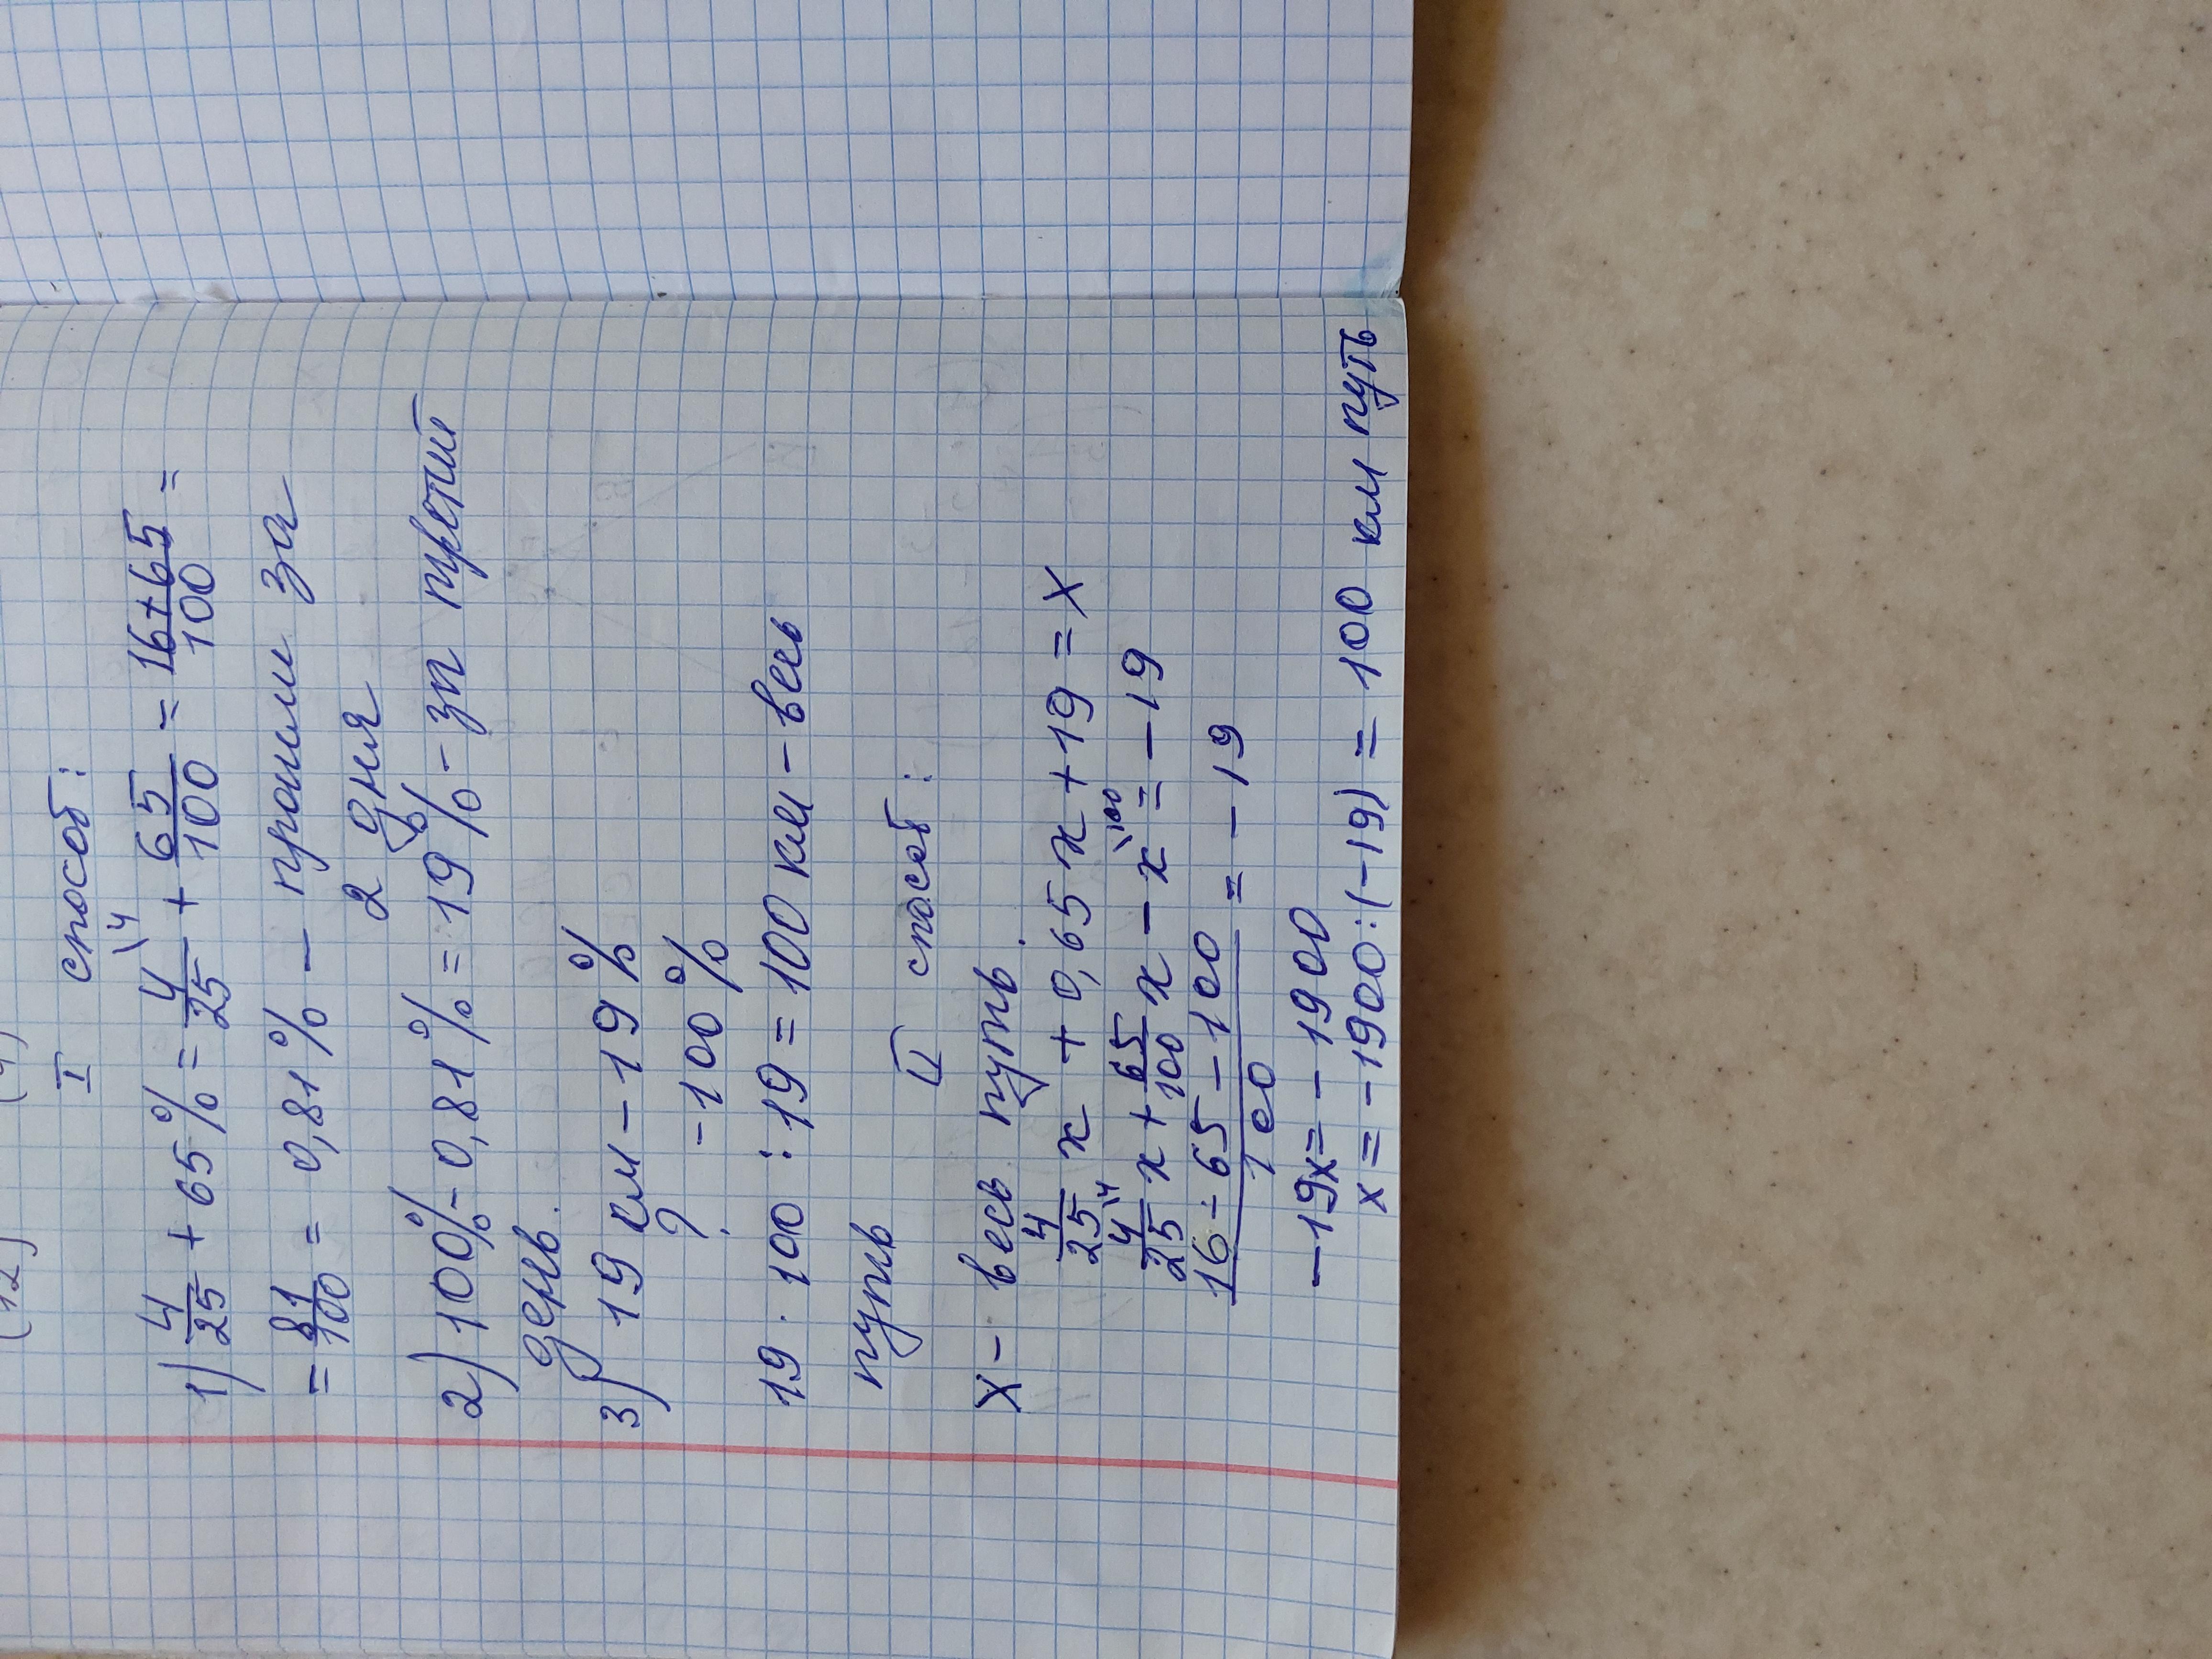 I способ:
1) 4/25 + 65% = 4/25 \4 + 65/100 = 16+65/100 =
= 81/100 = 0,81% — прошли за
2 дня
2) 100% - 0,81% = 19% - за третий
день.
3) 19 км - 19%
? - 100%
19 · 100 : 19 = 100 км - весь
путь
II способ:
X - весь путь.
4/25 x + 0,65 x + 19 = X
4/25 \4 x + 65/100 x - x \100 = - 19
16 - 65 - 100/100 = - 19
- 19x = - 1900
x = - 1900 : (-19) = 100 км путь